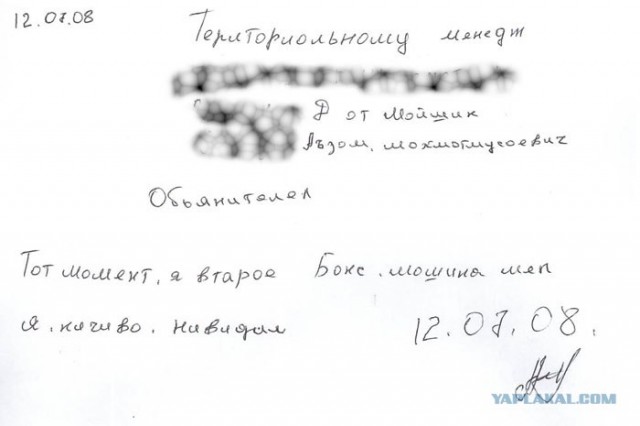 12.07.08
Териториольному менедж
Д от Мойщик
Аъзом. мохмотмусоевич
Обьянителел
Тот момент, я второе Бокс. мошина меп
я. ничиво. нивидал
12.07.08.
YAPLAKAL.COM